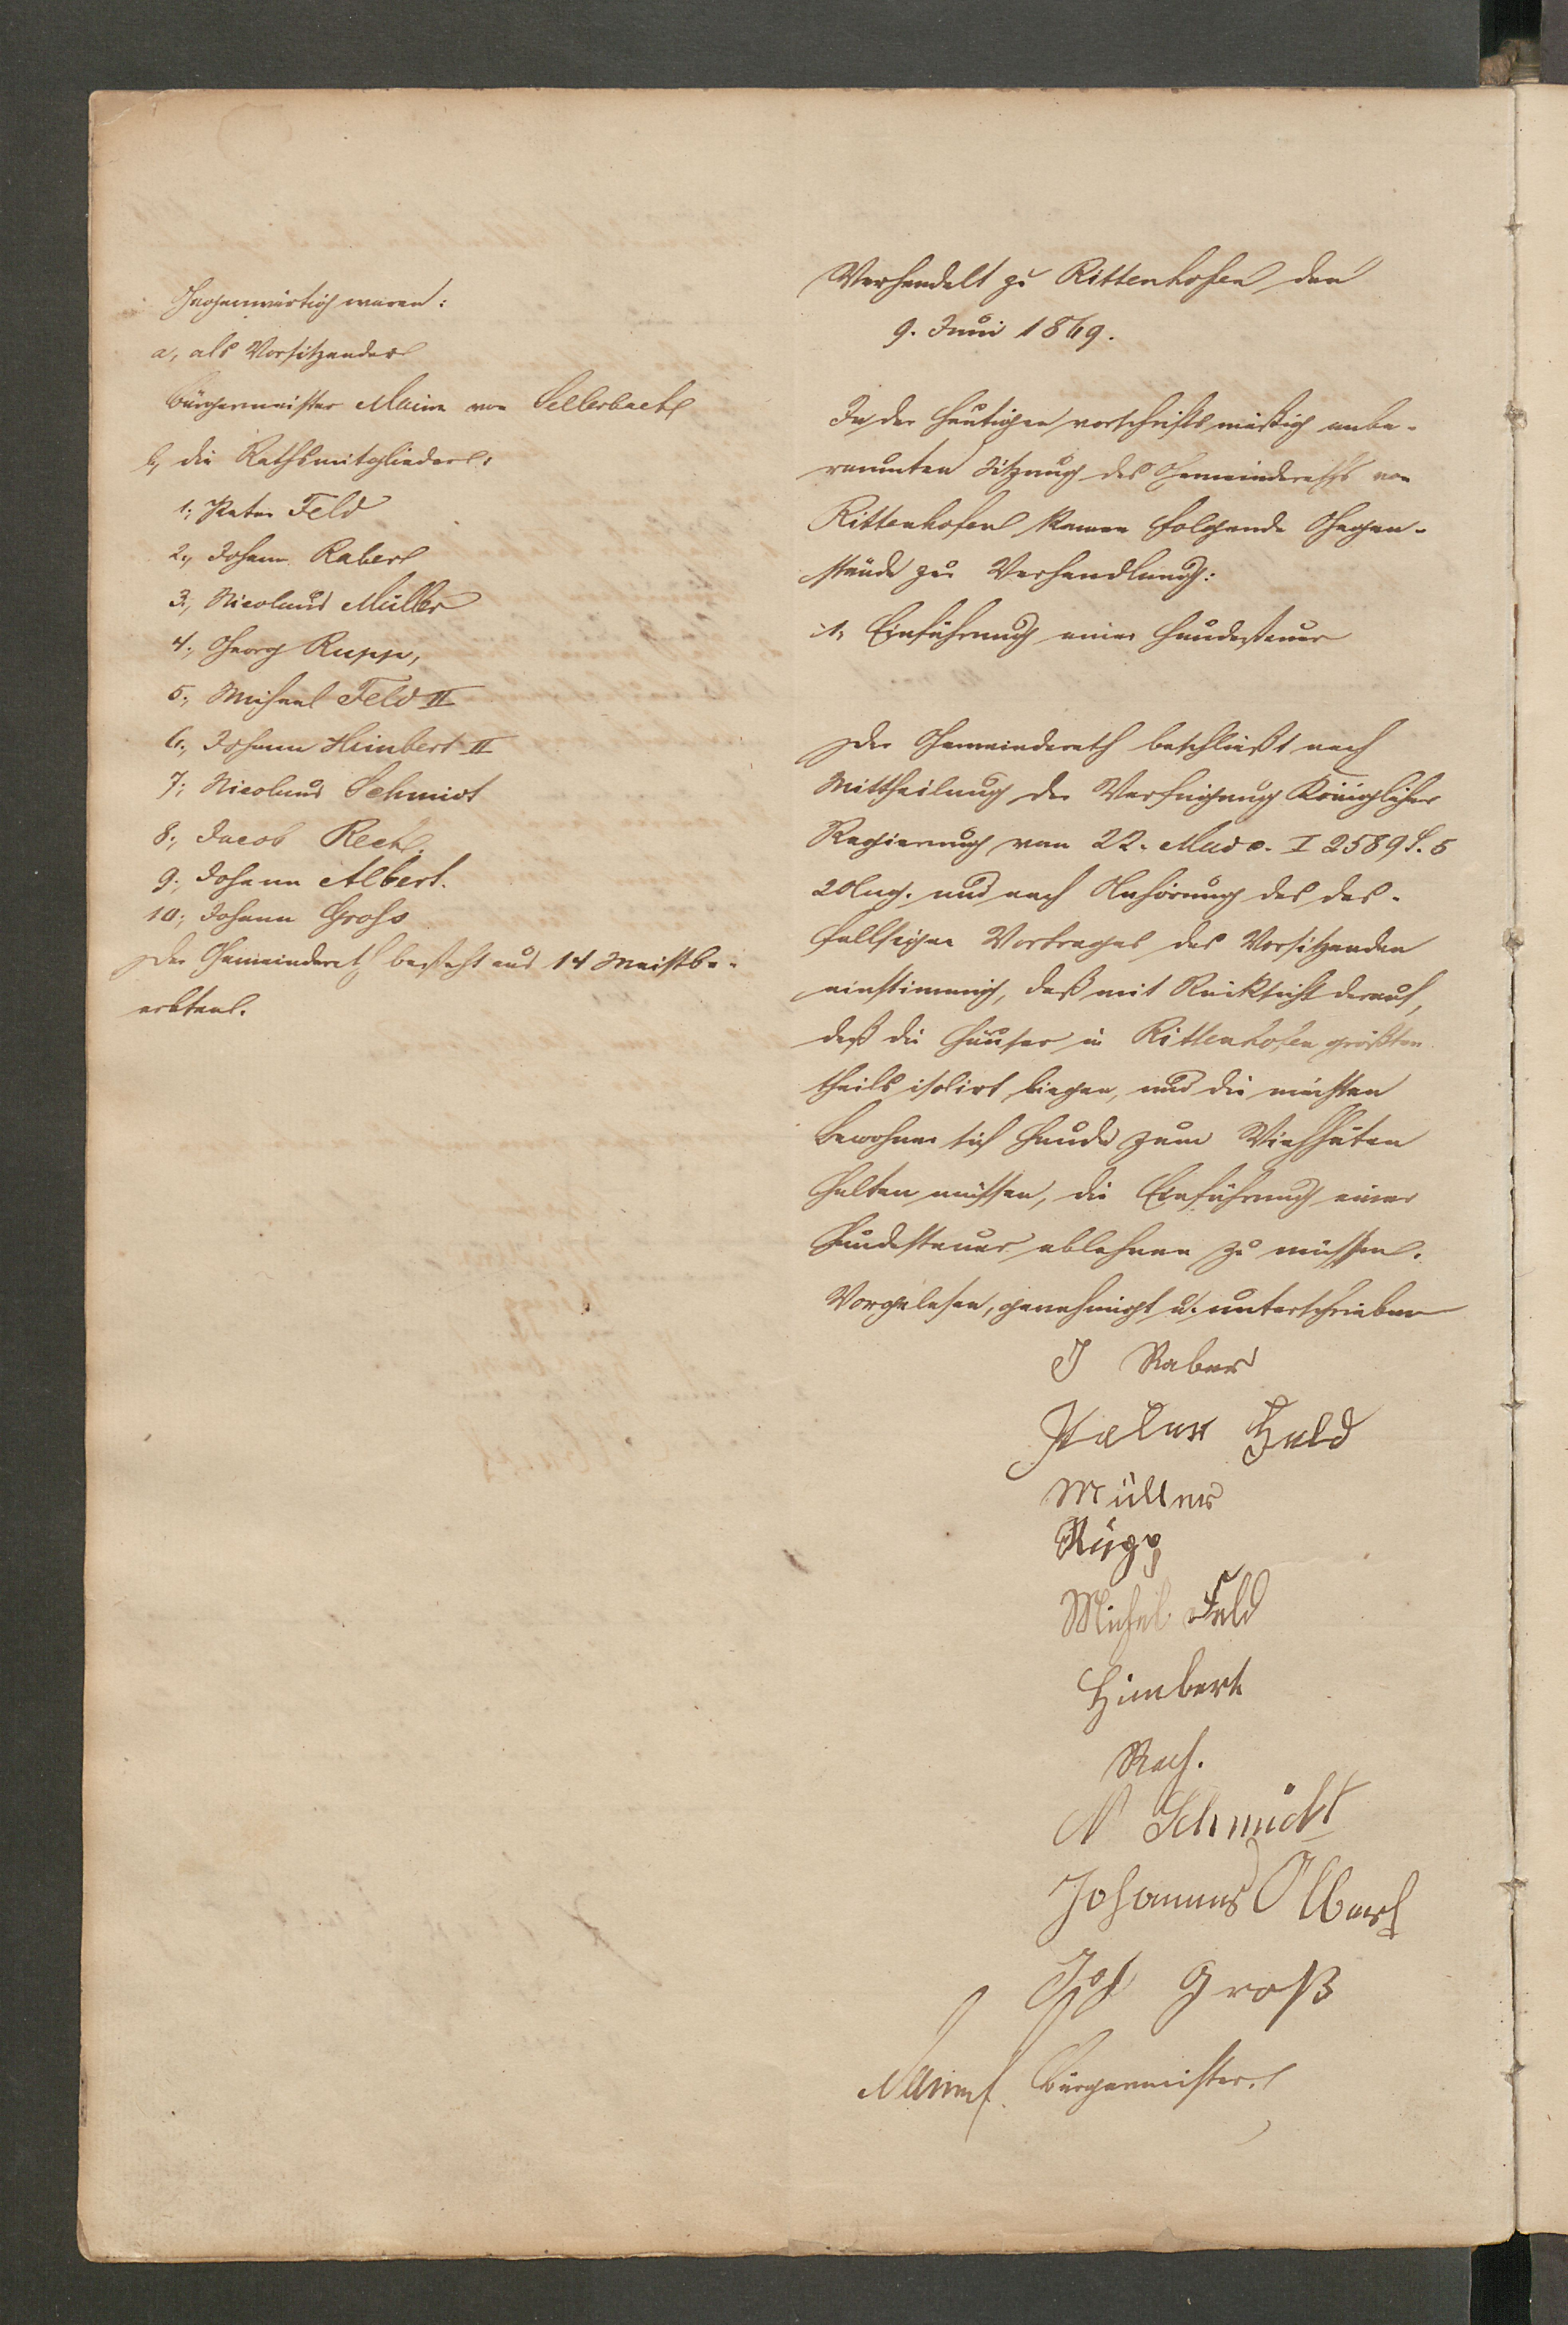 Gegenwärtig waren:
a, als Vorsitzender
Bürgermeister Maim von Sellerbach
b, die Rathsmitglieder:
1; Peter Feld
2., Johann Raber
3., Nicolaus Müller
4., Georg Rupp,
5., Michael Feld II
6., Johann Himbert II
7; Nicolaus Schmidt
8., Jacob Rech.
9., Johann Albert.
10; Johann Groß
Der Gemeinderath besteht aus 14 Meistbe-
erbten.
Verhandelt zu Rittenhofen den
9. Juni 1869.
In der heutigen vorschriftsmäßig anbe-
raumten Sitzung des Gemeinderaths von
Rittenhofen kamen folgende Gegen-
stände zur Verhandlung:
1, Einführung einer Hundesteuer
Der Gemeinderath beschließt nach
Mittheilung der Verfügung Königlicher
Regierung vom 22. Mai c. I 2589 S. 5
und nach Anhörung des des-
fallsigen Vortrages des Vorsitzenden
einstimmig, daß mit Rücksicht darauf,
daß die Häuser in Rittenhofen größten
theils isolirt liegen, und die meisten
Bewohner sich Hunde zum Viehhüten
halten müssen, die Einführung einer
Hundesteuer ablehnen zu müssen.
Vorgelesen, genehmigt u. unterschrieben
J Raber
Peter Feld
Müller
Rupp
Michel Feld
Himbert
Rech.
N Schmidt
Johannes Albert
Joh Groß
Maim Bürgermeister.